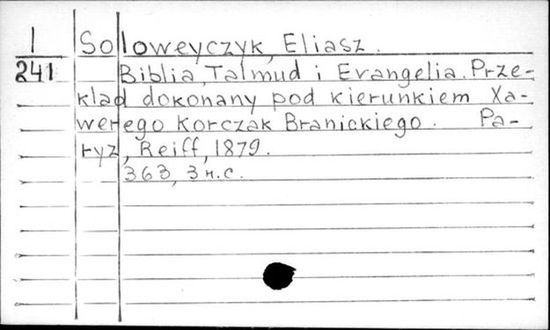 I Soloweyczyk, Eliasz.
241 Biblia, Talmud i Evangelia. Prze-
kład dokonany pod kierunkiem Xa-
werego Korczak Branickiego. Pa-
ryż, Reiff, 1879.
363, 3 н.с.